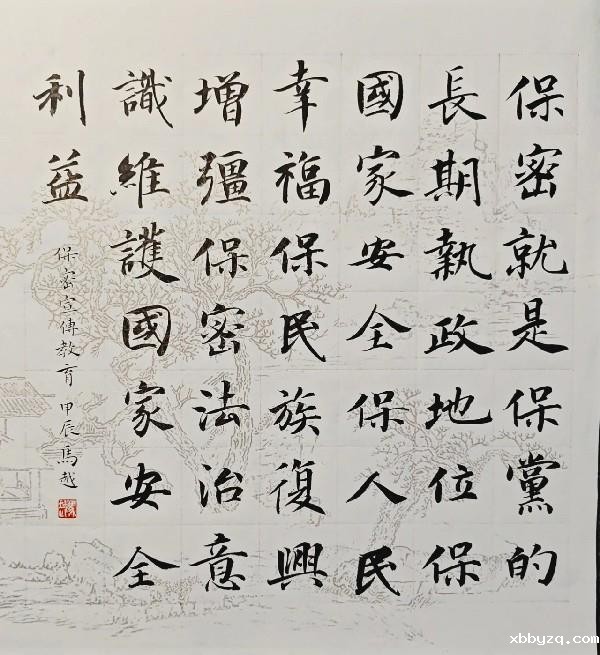 保密就是保黨的
長期執政地位保
國家安全保人民
幸福保民族復興
增彊保密法治意
識維護國家安全
利益
保密宣傳教育 甲辰馬越
xbbyzq.com